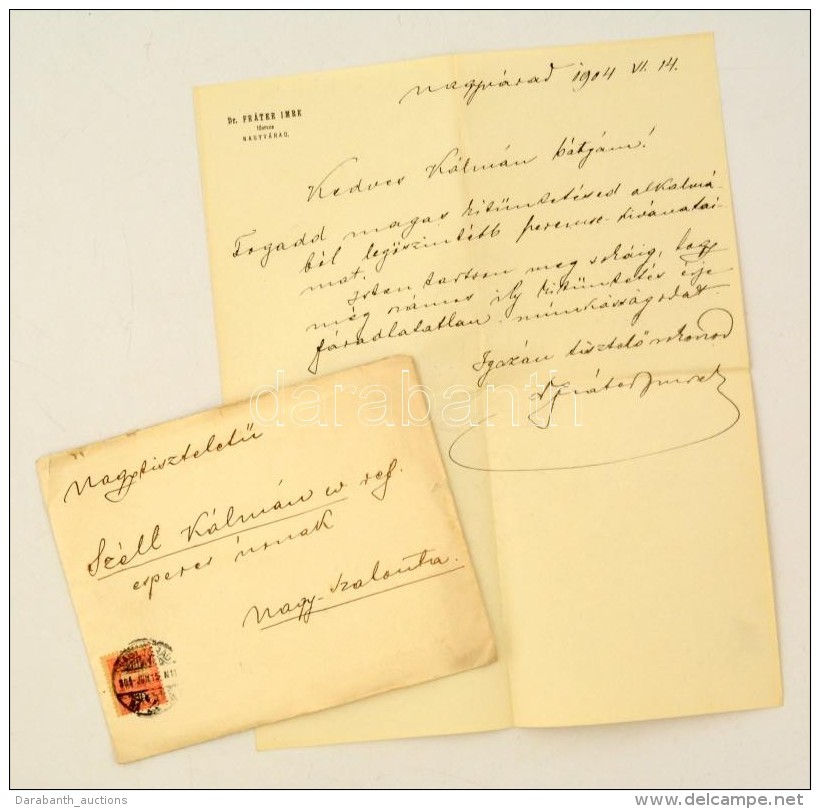 Nagyvárad 1904 VI. 14.
Dr. FRÁTER IMRE
főorvos
NAGYVÁRAD.
Kedves Kálmán bátyám!
Fogadd magas kitüntetésed alkalmá-
ból legőszintébb szerencse-kivánatai-
mat.
Isten tartson meg sokáig, hogy
még számos ily kitüntetés érje
fáradhatatlan munkásságodat.
Igazán tisztelő rokonod
Fráter Imre
darabanth
Nagytiszteletü
Széll Kálmán ev ref.
esperes úrnak
Nagy-Szalonta.
904 JUN 15
Darabanth_auctions
delcampe.net